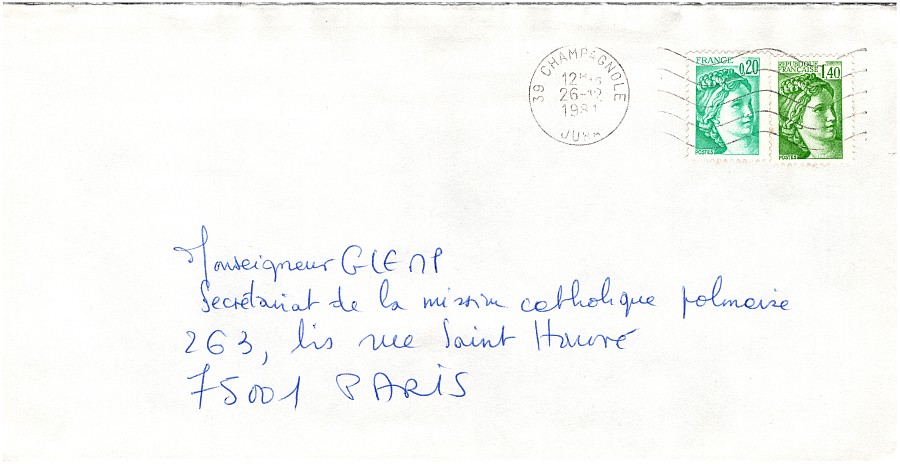 39 CHAMPAGNOLE
12H
26-12
1981
JURA
FRANCE
0,20
POSTES
REPUBLIQUE
FRANÇAISE
1,40
POSTES
Monseigneur GLEMP
Secrétariat de la mission catholique polonaise
263, bis rue Saint Honoré
75001 PARIS